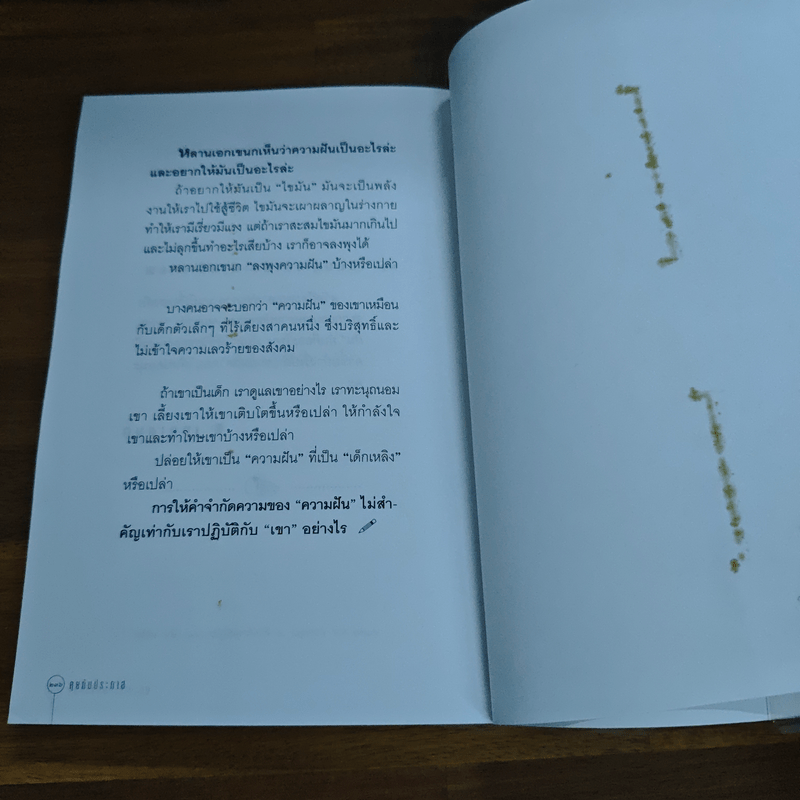 หลานเอกเขนกเห็นว่าความฝันเป็นอะไรล่ะ
และอยากให้มันเป็นอะไรล่ะ
ถ้าอยากให้มันเป็น “ไขมัน” มันจะเป็นพลัง
งานให้เราไปใช้สู้ชีวิต ไขมันจะเผาผลาญในร่างกาย
ทำให้เรามีเรี่ยวมีแรง แต่ถ้าเราสะสมไขมันมากเกินไป
และไม่ลุกขึ้นทำอะไรเสียบ้าง เราก็อาจลงพุงได้
หลานเอกเขนก “ลงพุงความฝัน” บ้างหรือเปล่า
บางคนอาจจะบอกว่า “ความฝัน” ของเขาเหมือน
กับเด็กตัวเล็กๆ ที่ไร้เดียงสาคนหนึ่ง ซึ่งบริสุทธิ์และ
ไม่เข้าใจความเลวร้ายของสังคม
ถ้าเขาเป็นเด็ก เราดูแลเขาอย่างไร เราทะนุถนอม
เขา เลี้ยงเขาให้เขาเติบโตขึ้นหรือเปล่า ให้กำลังใจ
เขาและทำโทษเขาบ้างหรือเปล่า
ปล่อยให้เขาเป็น “ความฝัน” ที่เป็น “เด็กเหลิง”
หรือเปล่า
การให้คำจำกัดความของ “ความฝัน” ไม่สำ-
คัญเท่ากับเราปฏิบัติกับ “เขา” อย่างไร